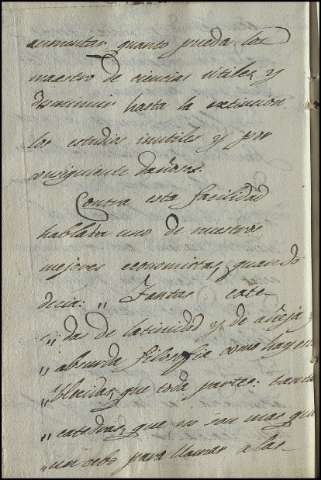 aumentar quanto pueda los
maestros de ciencias utiles, y
disminuir hasta la extincion
los estudios inutiles y por
consiguiente dañosos.
Contra esta facilidad
hablaba uno de nuestros
mejores economistas, quando
decia: „ Tantas cate-
„ das de latinidad y de añeja y
„ absurda filosofia como hay en
„ blecidas por todas partes: tantas
„ catedras, que no son mas que
„ un cebo para llamar a las